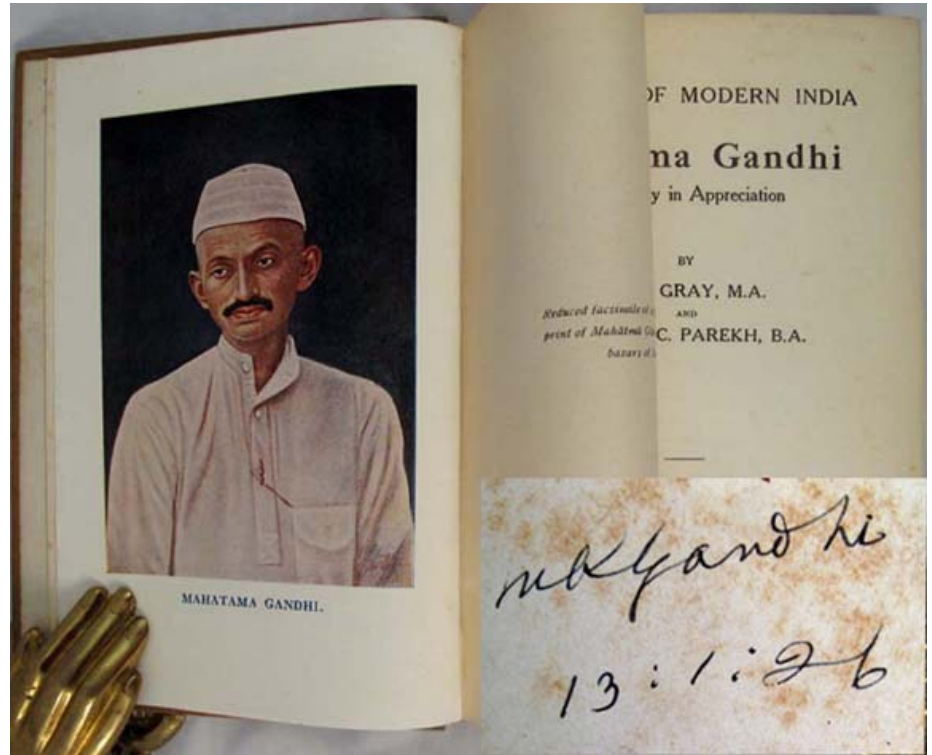 MAHATAMA GANDHI.
OF MODERN INDIA
ma Gandhi
y in Appreciation
BY
GRAY, M.A.
AND
C. PAREKH, B.A.
Reduced facsimile
print of Mahātmā
bazars
MKGandhi
13:1:26